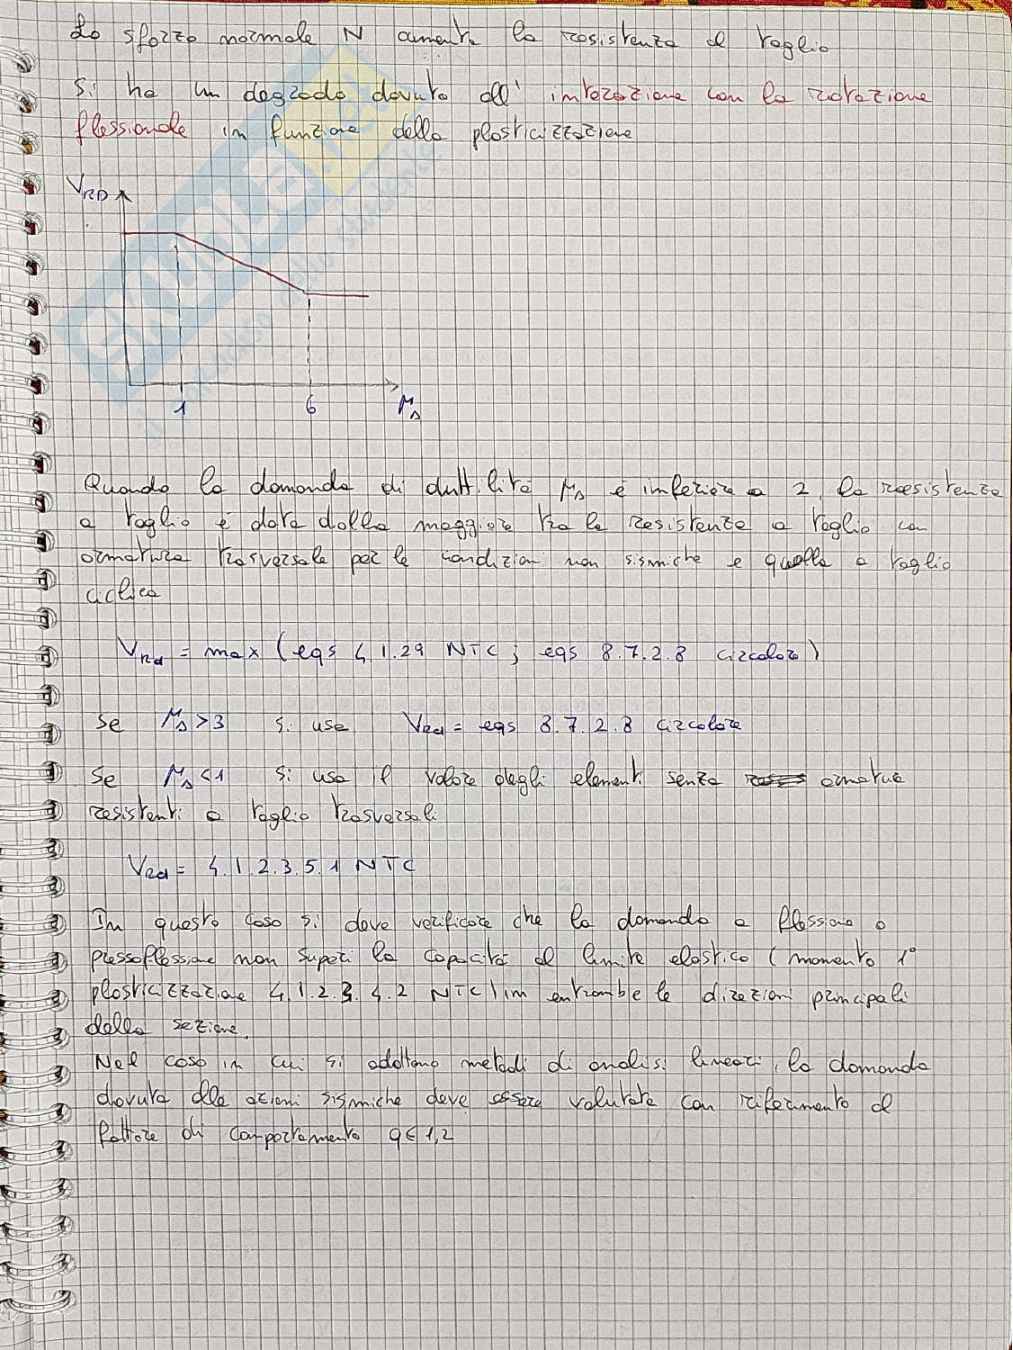 Lo sforzo normale N aumenta la resistenza al taglio
Si ha un degrado dovuto all' interazione con la rotazione
flessionale in funzione della plasticizzazione
VRD
1
6
μΔ
Quando la domanda di duttilità μΔ è inferiore a 2, la resistenza
a taglio è data dalla maggiore tra la resistenza a taglio con
armatura trasversale per le condizioni non sismiche e quella a taglio
ciclico
VRd = max (eqs 4.1.29 NTC ; eqs 8.7.2.8 circolare)
Se μΔ>3 si usa VRd = eqs 8.7.2.8 circolare
Se μΔ<1 si usa il valore degli elementi senza armature
resistenti a taglio trasversali
VRd = 4.1.2.3.5.1 NTC
In questo caso si deve verificare che la domanda a flessione o
pressoflessione non superi la capacità al limite elastico (momento 1°
plasticizzazione 4.1.2.3.4.2 NTC) in entrambe le direzioni principali
della sezione.
Nel caso in cui si adottano metodi di analisi lineari, la domanda
dovuta alle azioni sismiche deve essere valutata con riferimento al
fattore di comportamento q∈1,2